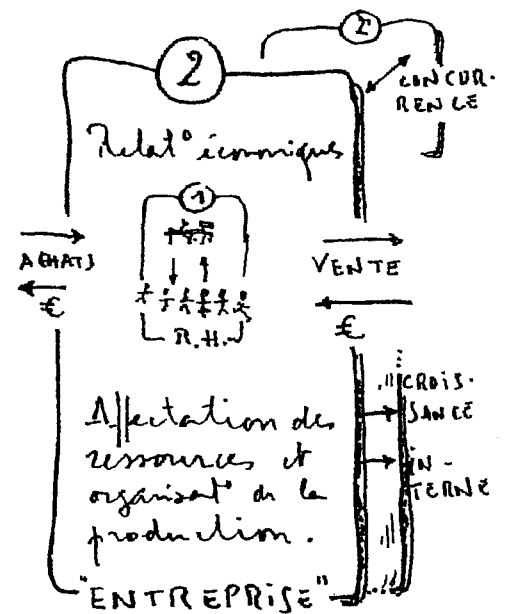 2
2
CONCUR-
RENCE
Relat° économiques
1
ACHATS
€
VENTE
€
R.H.
Affectation des
ressources et
organisat° de la
production.
CROIS-
SANCE
IN-
TERNE
"ENTREPRISE"